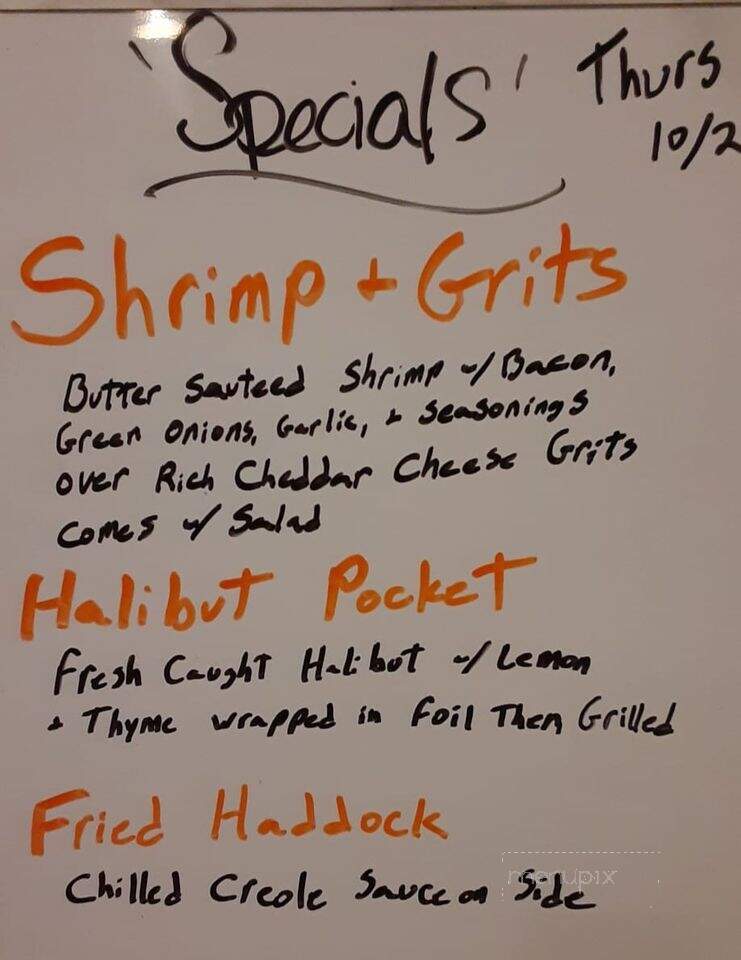 'Specials' Thurs
10/2
Shrimp + Grits
Butter Sauteed Shrimp w/ Bacon,
Green Onions, Garlic, + Seasonings
over Rich Cheddar Cheese Grits
Comes w/ Salad
Halibut Pocket
Fresh Caught Halibut w/ Lemon
+ Thyme wrapped in Foil Then Grilled
Fried Haddock
Chilled Creole Sauce on Side
menupix